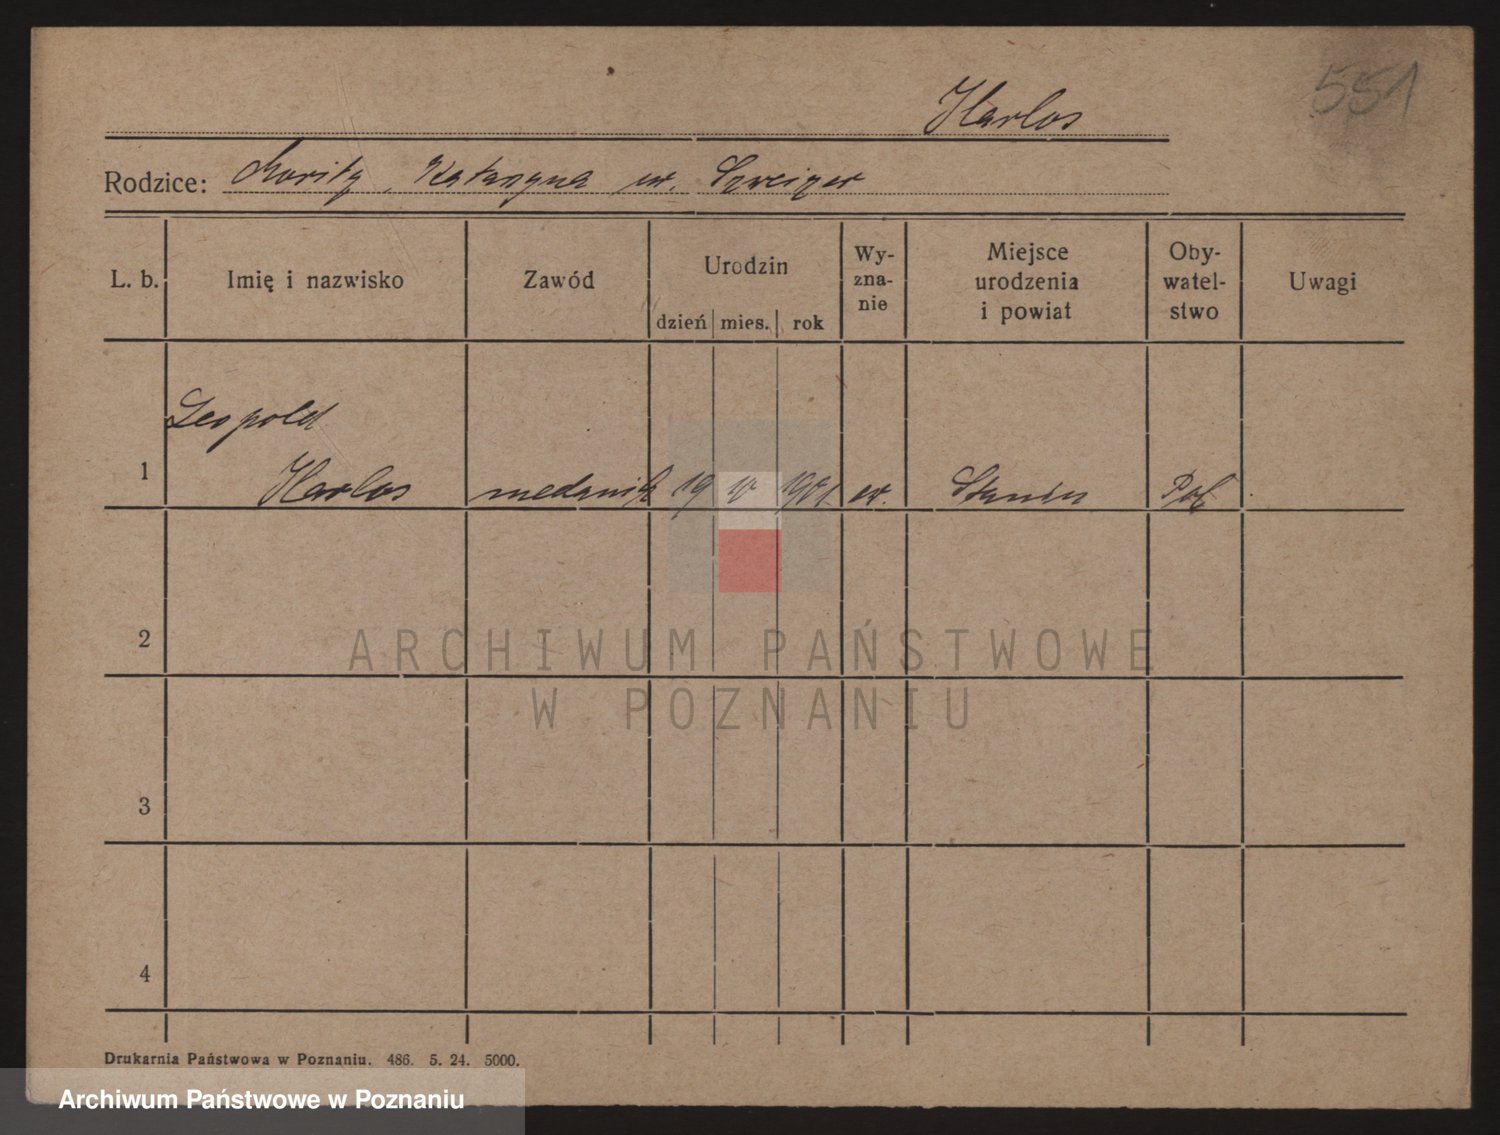 551
Harlos
Rodzice: Moritz, Katarzyna ur. Szweizer
L. b. Imię i nazwisko Zawód Urodzin dzień mies. rok Wy-zna-nie Miejsce urodzenia i powiat Oby-watel-stwo Uwagi
Leopold
1 Harlos 19 10 1901. ew. Pol.
2
3
4
Drukarnia Państwowa w Poznaniu. 486. 5. 24. 5000.
ARCHIWUM PAŃSTWOWE
W POZNANIU
Archiwum Państwowe w Poznaniu